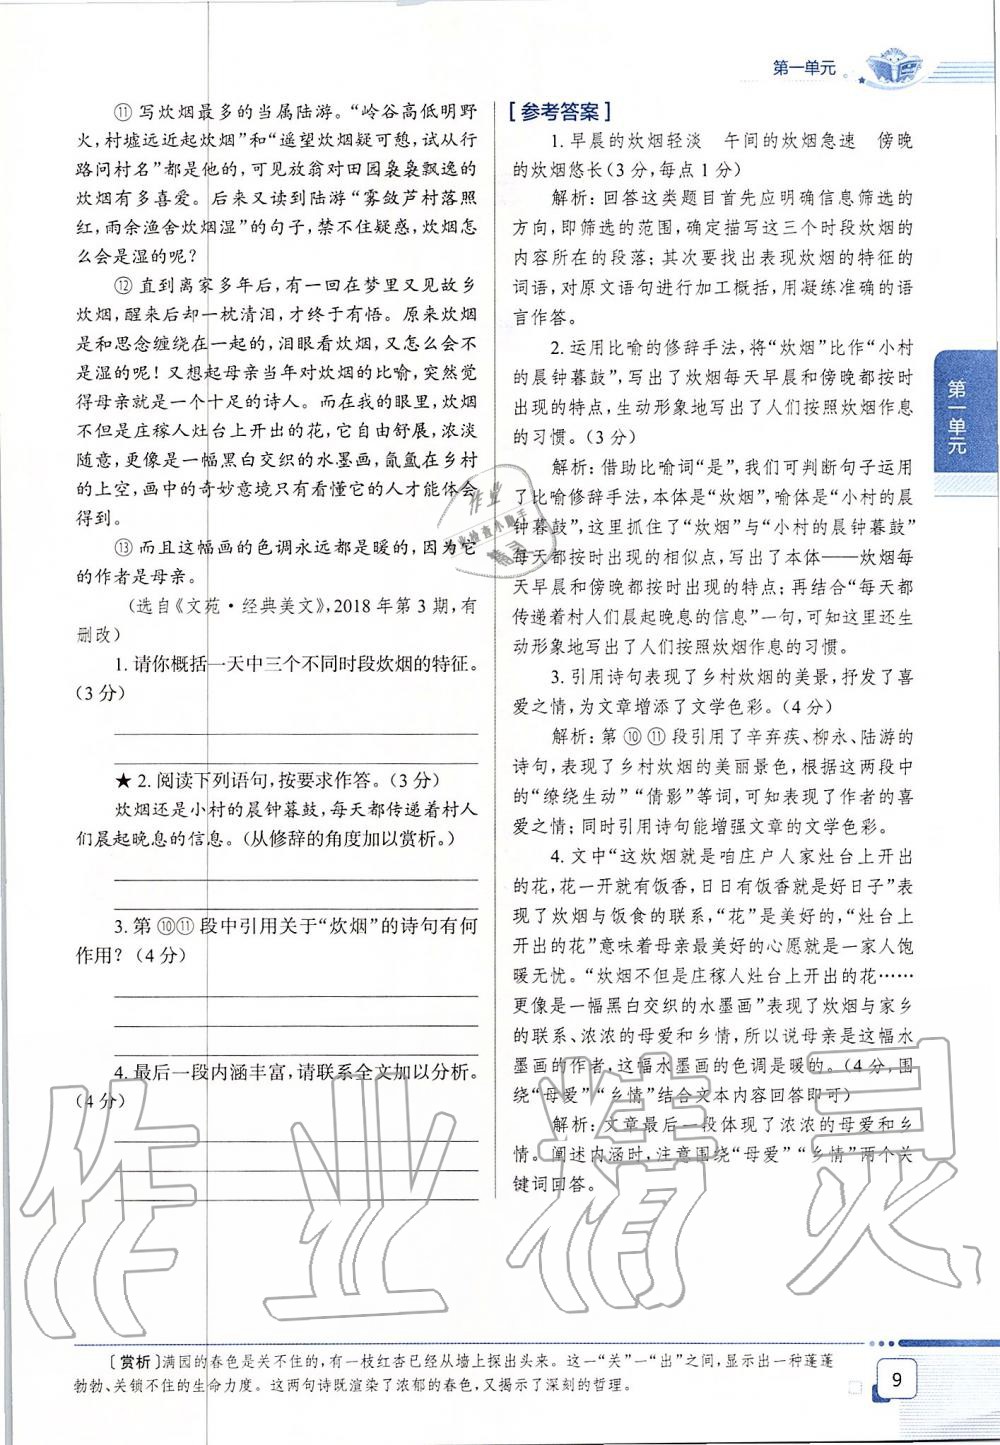 第一单元
⑪ 写炊烟最多的当属陆游。“岭谷高低明野
火,村墟远近起炊烟”和“遥望炊烟疑可憩,试从行
路问村名”都是他的,可见放翁对田园袅袅飘逸的
炊烟有多喜爱。后来又读到陆游“雾敛芦村落照
红,雨余渔舍炊烟湿”的句子,禁不住疑惑,炊烟怎
么会是湿的呢?
⑫ 直到离家多年后,有一回在梦里又见故乡
炊烟,醒来后却一枕清泪,才终于有悟。原来炊烟
是和思念缠绕在一起的,泪眼看炊烟,又怎么能不
是湿的呢!又想起母亲当年对炊烟的比喻,突然觉
得母亲就是一个十足的诗人。而在我的眼里,炊烟
不但是庄稼人灶台上开出的花,它自由舒展,浓淡
随意,更像是一幅黑白交织的水墨画,氤氲在乡村
的上空,画中的奇妙意境只有看懂它的人才能体会
得到。
⑬ 而且这幅画的色调永远都是暖的,因为它
的作者是母亲。
(选自《文苑·经典美文》,2018年第3期,有
删改)
1. 请你概括一天中三个不同时段炊烟的特征。
(3分)
★ 2. 阅读下列语句,按要求作答。(3分)
炊烟还是小村的晨钟暮鼓,每天都传递着村人
们晨起晚息的信息。(从修辞的角度加以赏析。)
3. 第⑩⑪段中引用关于“炊烟”的诗句有何
作用?(4分)
4. 最后一段内涵丰富,请联系全文加以分析。
(4分)
[参考答案]
1. 早晨的炊烟轻淡 午间的炊烟急速 傍晚
的炊烟悠长(3分,每点1分)
解析:回答这类题目首先应明确信息筛选的
方向,即筛选的范围,确定描写这三个时段炊烟的
内容所在的段落;其次要找出表现炊烟的特征的
词语,对原文语句进行加工概括,用凝练准确的语
言作答。
2. 运用比喻的修辞手法,将“炊烟”比作“小村
的晨钟暮鼓”,写出了炊烟每天早晨和傍晚都按时
出现的特点,生动形象地写出了人们按照炊烟作息
的习惯。(3分)
解析:借助比喻词“是”,我们可判断句子运用
了比喻修辞手法,本体是“炊烟”,喻体是“小村的晨
钟暮鼓”,这里抓住了“炊烟”与“小村的晨钟暮鼓”
每天都按时出现的相似点,写出了本体——炊烟每
天早晨和傍晚都按时出现的特点;再结合“每天都
传递着村人们晨起晚息的信息”一句,可知这里还生
动形象地写出了人们按照炊烟作息的习惯。
3. 引用诗句表现了乡村炊烟的美景,抒发了喜
爱之情,为文章增添了文学色彩。(4分)
解析:第⑩⑪段引用了辛弃疾、柳永、陆游的
诗句,表现了乡村炊烟的美丽景色,根据这两段中
的“缭绕生动”“倩影”等词,可知表现了作者的喜
爱之情;同时引用诗句能增强文章的文学色彩。
4. 文中“这炊烟就是咱庄户人家灶台上开出
的花,花开就有饭香,日日有饭香就是好日子”表
现了炊烟与饭食的联系,“花”是美好的,“灶台上
开出的花”意味着母亲最美好的心愿就是一家人饱
暖无忧。“炊烟不但是庄稼人灶台上开出的花……
更像是一幅黑白交织的水墨画”表现了炊烟与家乡
的联系、浓浓的母爱和乡情,所以说母亲是这幅水
墨画的作者,这幅水墨画的色调是暖的。(4分,围
绕“母爱”“乡情”结合文本内容回答即可)
解析:文章最后一段体现了浓浓的母爱和乡
情。阐述内涵时,注意围绕“母爱”“乡情”两个关
键词回答。
第一单元
作业精灵
[赏析]满园的春色是关不住的,有一枝红杏已经从墙上探出头来。这一“关”一“出”之间,显示出一种蓬蓬
勃勃、关锁不住的生命力度。这两句诗既渲染了浓郁的春色,又揭示了深刻的哲理。
9